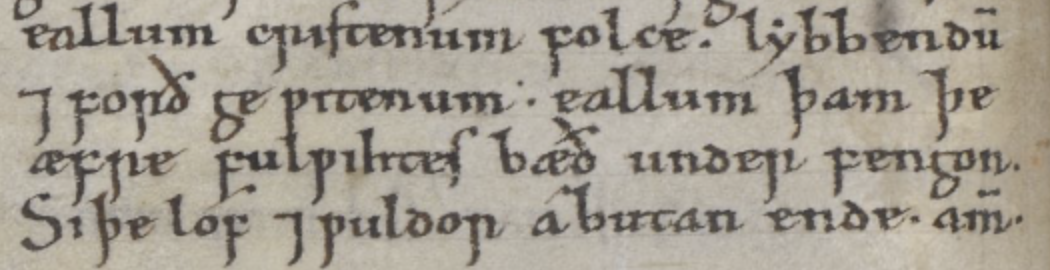 eallum cristenum folce. lybbendū
⁊ forð ge ƿitenum: eallum þam þe
æfre fulƿihtes bæð under fengon.
Si þe lof ⁊ ƿuldor abutan ende. am̄.